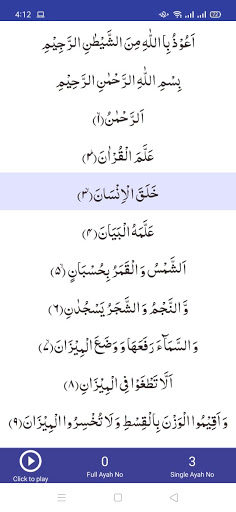 4:12
72
اَعُوْذُ بِا اللّٰهِ مِنَ الشَّيْطٰنِ الرَّجِيْمِ
بِسْمِ اللّٰهِ الرَّحْمٰنِ الرَّحِيْمِ
اَلرَّحْمٰنُ ۙ(۱)
عَلَّمَ الْقُرْاٰنَ ؕ(۲)
خَلَقَ الْاِنْسَانَ ۙ(۳)
عَلَّمَهُ الْبَيَانَ (۴)
اَلشَّمْسُ وَ الْقَمَرُ بِحُسْبَانٍ ۪(۵)
وَّ النَّجْمُ وَ الشَّجَرُ يَسْجُدٰنِ (۶)
وَ السَّمَآءَ رَفَعَهَا وَ وَضَعَ الْمِيْزَانَ ۙ(۷)
اَلَّا تَطْغَوْا فِی الْمِيْزَانِ (۸)
وَ اَقِيْمُوا الْوَزْنَ بِالْقِسْطِ وَ لَا تُخْسِرُوا الْمِيْزَانَ (۹)
0 3
Click to play Full Ayah No Single Ayah No